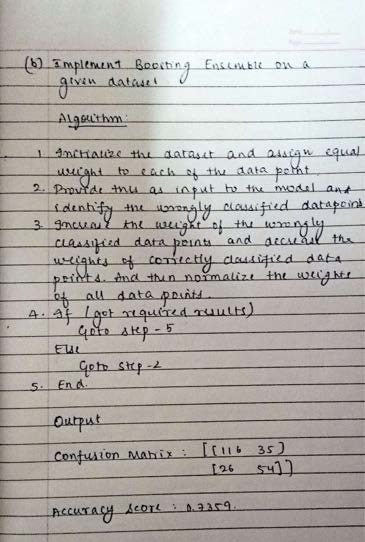 (b) Implement Boosting Ensemble on a
given dataset.
Algorithm:
1. Initialize the dataset and assign equal
weight to each of the data point.
2. Provide this as input to the model and
identify the wrongly classified datapoints
3. Increase the weight of the wrongly
classified data points and decrease the
weights of correctly classified data
points. And then normalize the weights
of all data points.
4. If (got required results)
Goto step - 5
Else
Goto step - 2
5. End.
Output
Confusion Matrix : [[116 35]
[26 54]]
Accuracy score : 0.7359.